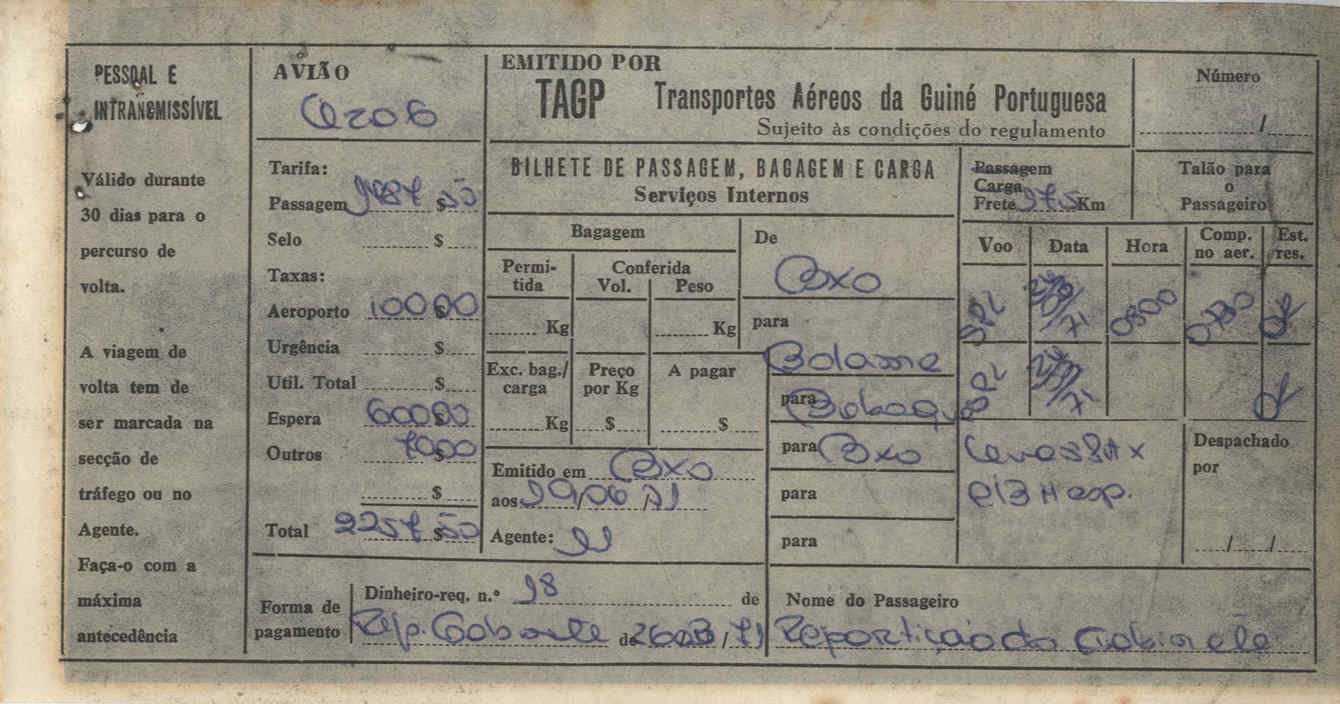 PESSOAL E
INTRANSMISSÍVEL
Válido durante
30 dias para o
percurso de
volta.
A viagem de
volta tem de
ser marcada na
secção de
tráfego ou no
Agente.
Faça-o com a
máxima
antecedência
AVIÃO
Tarifa:
Passagem $50
Selo $
Taxas:
Aeroporto 100$00
Urgência $
Util. Total $
Espera 600$00
Outros 70$00
$
Total 2257$50
EMITIDO POR
TAGP Transportes Aéreos da Guiné Portuguesa
Sujeito às condições do regulamento
Número
/
BILHETE DE PASSAGEM, BAGAGEM E CARGA
Serviços Internos
Passagem
Carga
Frete 375 Km
Talão para
o
Passageiro
Bagagem
Permi-
tida
Conferida
Vol. Peso
Kg Kg
Exc. bag./
carga
Preço
por Kg
A pagar
Kg $ $
Emitido em Bxo
aos
Agente:
De
Bxo
para
Bolama
para
para Bxo
para
para
Voo Data Hora Comp.
no aer. Est.
res.
SPL 0800 0730 OK
SPL OK
Hosp.
Despachado
por
/ /
Forma de
pagamento
Dinheiro-req. n.º 18 de
Rep. Gabinete de
Nome do Passageiro
Repartição do Gabinete